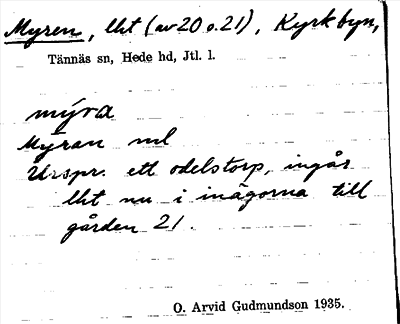 Myren, lht (av 20 o. 21), Kyrkbyn,
Tännäs sn, Hede hd, Jtl. l.
mýra
Myran ml
Urspr. ett odelstorp, ingår
lht nu i inägorna till
gården 21.
O. Arvid Gudmundson 1935.